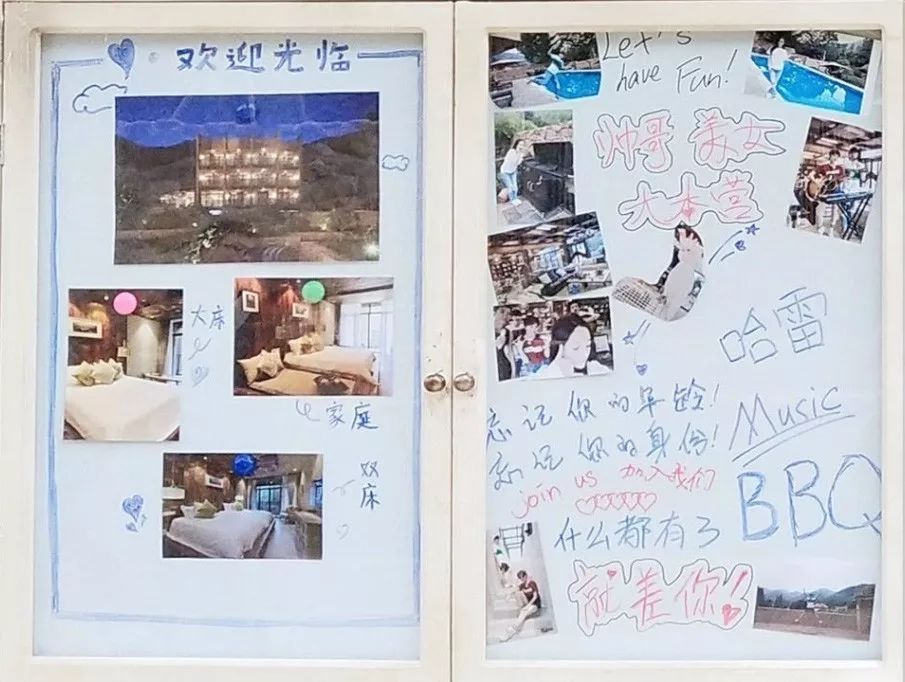 欢迎光临
大床
家庭
双床
Let's
have Fun!
帅哥 美女
大本营
哈雷
忘记你的年龄!
忘记你的身份!
Music
join us 加入我们
BBQ
什么都有了
就差你!